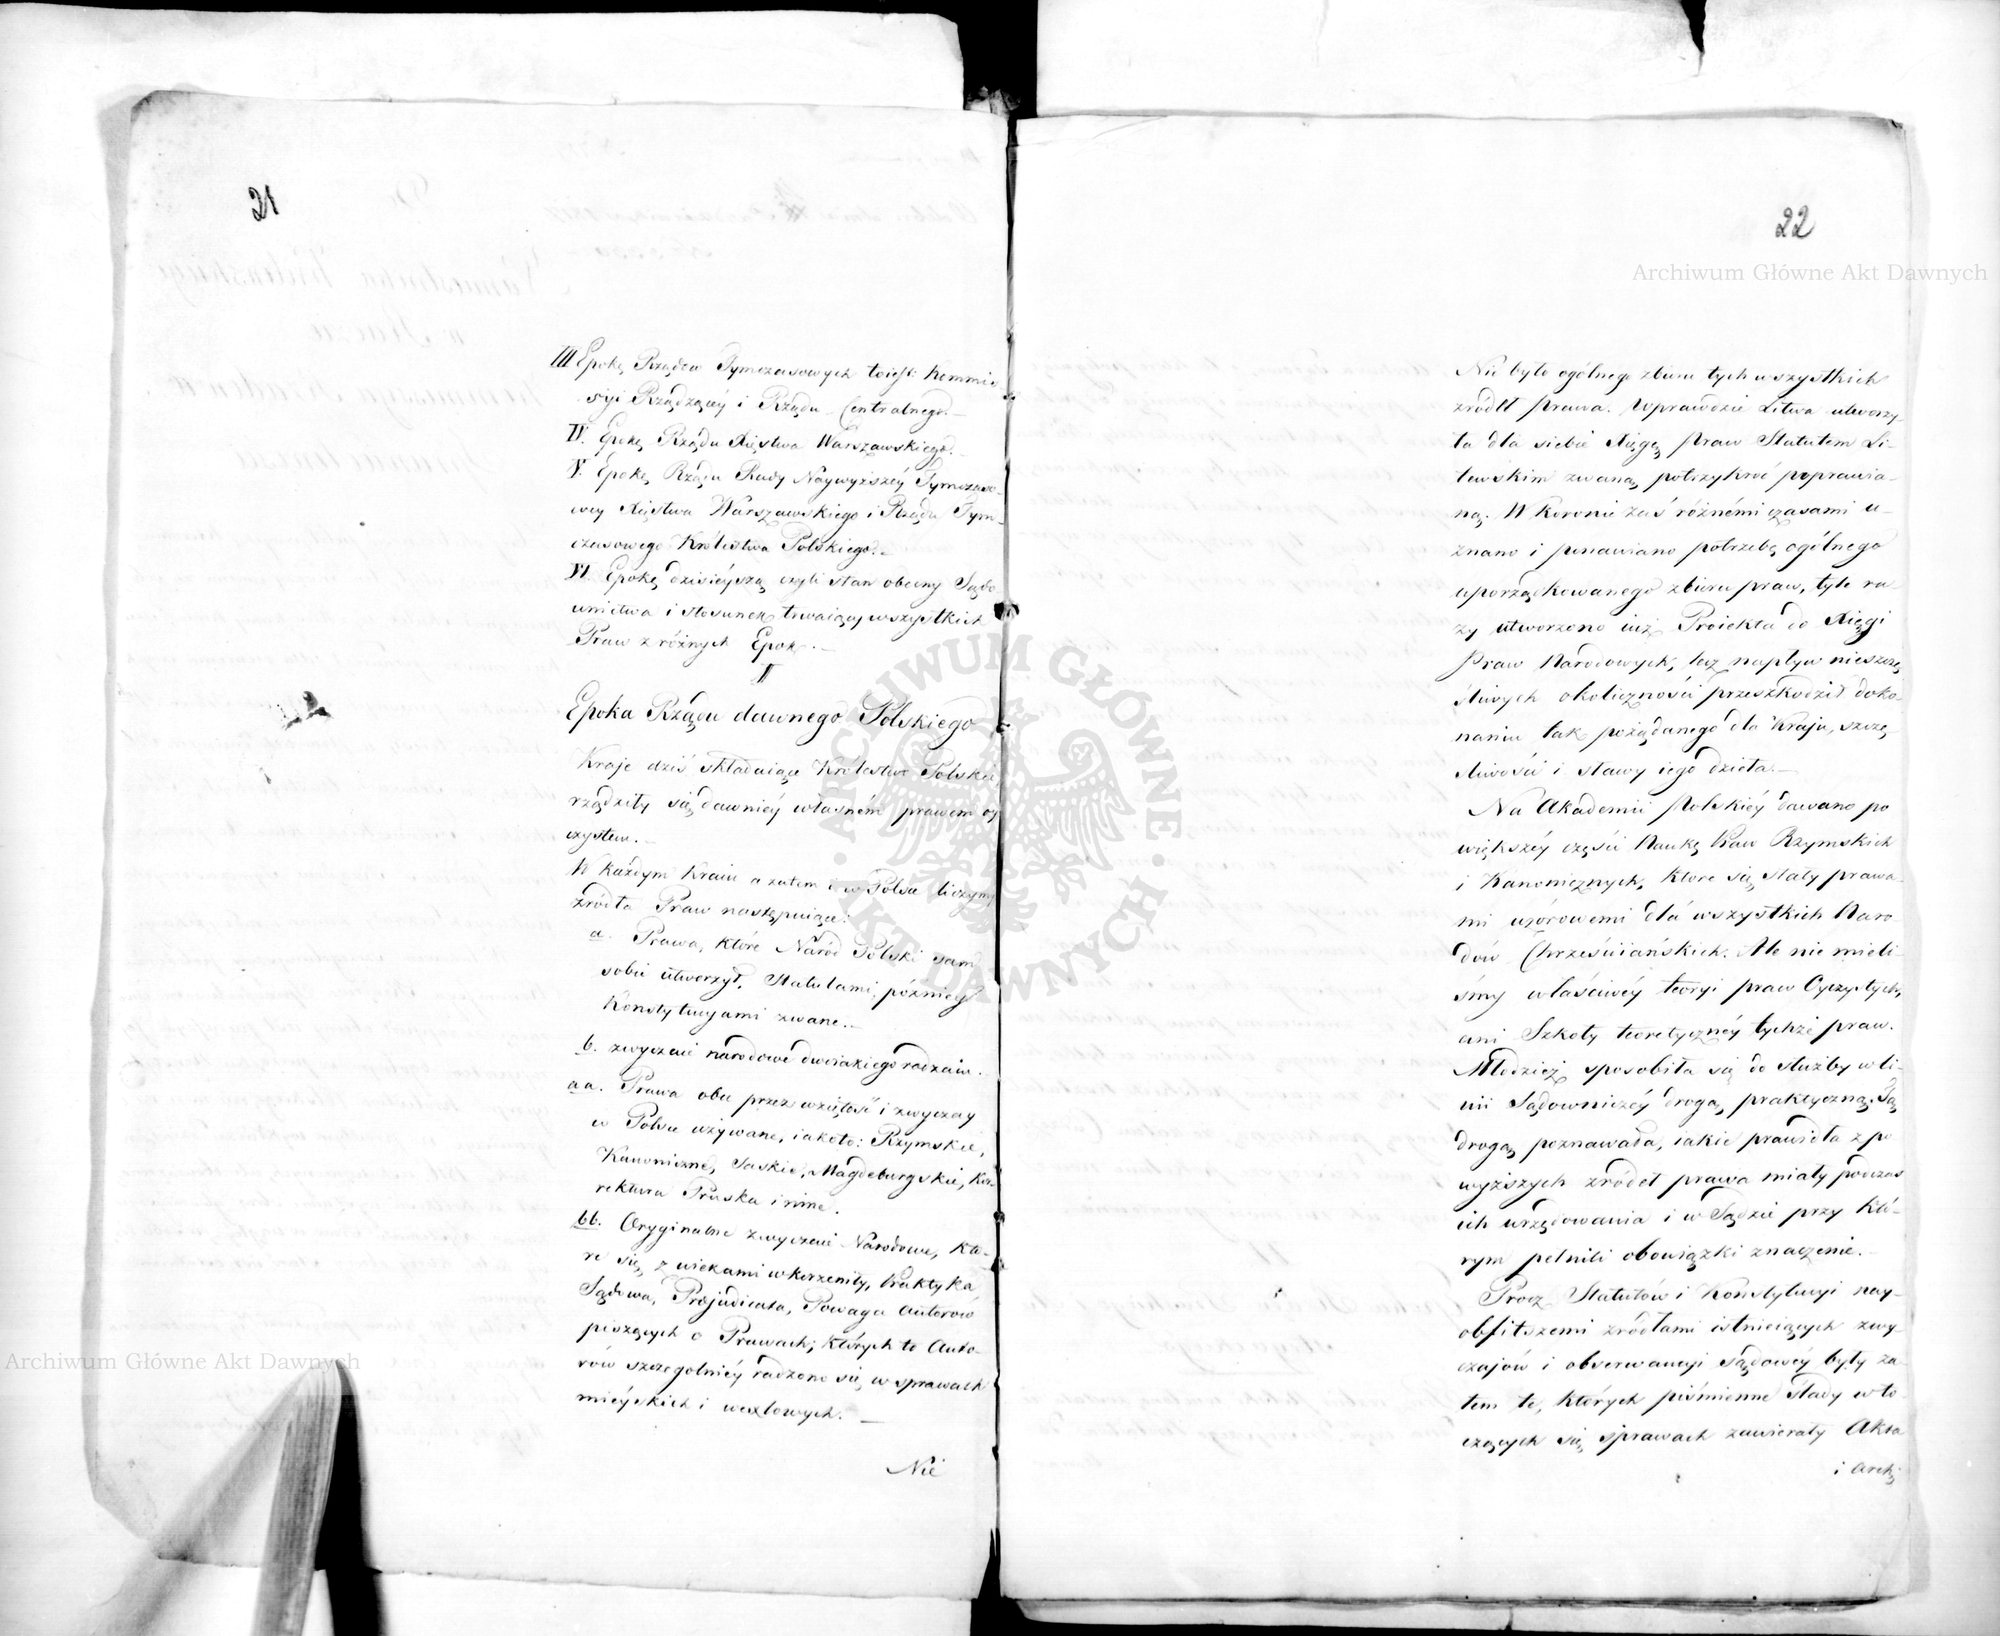 21
III Epokę Rządów Tymczasowych toiest: Kommis
siji Rządzącey i Rządu Centralnego.
IV. Epokę Rządu Xięstwa Warszawskiego.
V. Epokę Rządu Rady Naywyższéy Tymczaso-
wey Xięstwa Warszawskiego i Rządu Tym-
czasowego Królestwa Polskiego.
VI. Epokę dzisieyszą czyli stan obecny Sądo
wnictwa i stosunek trwaiący wszystkich
Praw z różnych Epok.
Epoka Rządu dawnego Polskiego
Kraje dziś składaiące Królestwo Polskie,
rządziły się dawniéy własném prawem oy
czystem.
W każdym Kraiu a zatem i w Polsce liczymy
źrodła Praw następuiące:
a. Prawa, które Naród Polski sam
sobie utworzył, Statutami, późniéy
Konstytucyami zwane.
b. zwyczaie narodowe dwoiakiego rodzaiu.
aa. Prawa obce przez wziętość i zwyczay
w Polsce używane, iakoto: Rzymskie,
Kanoniczne, Saskie, Magdeburgskie, Kor-
rektura Pruska i inne.
bb. Oryginalne zwyczaie Narodowe, któ-
re się z wiekami wkorzeniły, Praktyka
Sądowa, Præjudicata, Powaga Autorów
piszących o Prawach; których to Auto-
rów szczegolniéy radzono się w sprawach
mieyskich i wexlowych.
Nie
22
Archiwum Główne Akt Dawnych
Nie było ogólnego zbioru tych wszystkich
źrodeł prawa. Wprawdzie Litwa utworzy-
ła dla siebie Xięgę praw Statutem Li-
tewskim zwaną, potrzykroć poprawia-
ną. W Koronie zaś różnémi czasami u-
znano i ponawiano potrzebę ogólnego
uporządkowanego zbioru praw, tyle ra-
zy utworzono iuż Proiekta do Xięgi
Praw Narodowych, lecz napływ nieszczę
śliwych okoliczności przeszkodził doko-
naniu tak pożądanego dla Kraju, szczę
śliwości i sławy iego dzieła.
Na Akademii Polskiéy dawano po
większéy części Naukę Praw Rzymskich
i Kanonicznych, które się stały prawa-
mi wzorowemi dla wszystkich Naro
dów Chrześciiańskich. Ale nie mieli-
śmy właściwéy teoryi praw Oyczystych,
ani Szkoły teoretycznéy tychże praw.
Młodzież sposobiła się do służby w li-
nii Sądowniczéy drogą praktyczną. Tą
drogą poznawała, iakie prawidła z po
wyższych źródeł prawa miały podczas
ich urzędowania i w Sądzie przy któ-
rym pełnili obowiązki znaczenie.
Procz Statutów i Konstytucyi nay-
obfitszemi źródłami istnieiących zwy
czajów i obserwancyi sądowéy były za-
tem te, których piśmienne ślady w to-
czących się sprawach zawierały Akta
i Archi
ARCHIWUM GŁÓWNE AKT DAWNYCH
Archiwum Główne Akt Dawnych